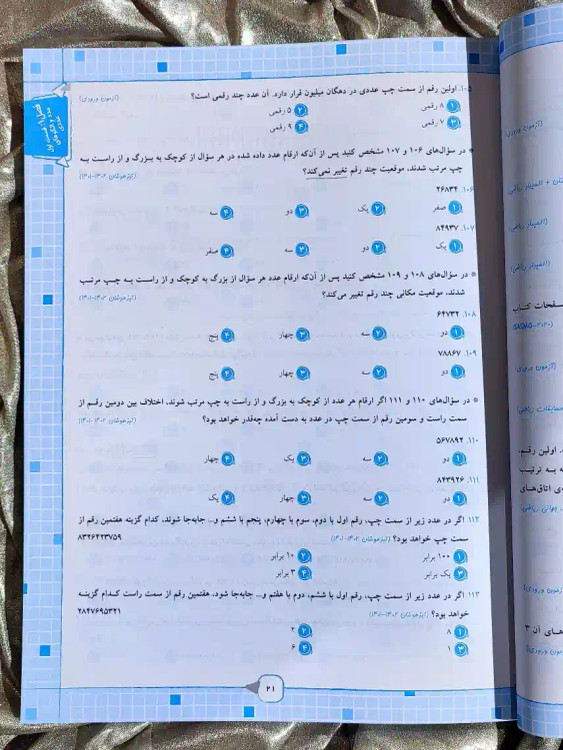 ۱۰۵. اولین رقم از سمت چپ عددی در دهگان میلیون قرار دارد. آن عدد چند رقمی است؟ (آزمون ورودی)
۱) ۸ رقمی ۲) ۵ رقمی
۳) ۷ رقمی ۴) ۹ رقمی
فصل ۱، قسمت اول
عدد و الگوهای عددی
* در سؤال‌های ۱۰۶ و ۱۰۷ مشخص کنید پس از آن‌که ارقام عدد داده شده در هر سؤال از کوچک به بزرگ و از راست به
چپ مرتب شدند، موقعیت چند رقم تغییر نمی‌کند؟ (تیزهوشان ۱۴۰۲-۱۴۰۱)
۱۰۶. ۲۶۸۳۴
۱) صفر ۲) یک ۳) دو ۴) سه
۱۰۷. ۸۴۹۳۷
۱) یک ۲) دو ۳) سه ۴) صفر
* در سؤال‌های ۱۰۸ و ۱۰۹ مشخص کنید پس از آن‌که ارقام عدد هر سؤال از بزرگ به کوچک و از راست به چپ مرتب
شدند، موقعیت مکانی چند رقم تغییر می‌کند؟ (تیزهوشان ۱۴۰۲-۱۴۰۱)
۱۰۸. ۶۴۷۳۲
۱) دو ۲) سه ۳) چهار ۴) پنج
۱۰۹. ۷۸۸۶۷
۱) دو ۲) سه ۳) چهار ۴) پنج
* در سؤال‌های ۱۱۰ و ۱۱۱ اگر ارقام هر عدد از کوچک به بزرگ و از راست به چپ مرتب شوند، اختلاف بین دومین رقم از
سمت راست و سومین رقم از سمت چپ در عدد به دست آمده چه‌قدر خواهد بود؟ (تیزهوشان ۱۴۰۲-۱۴۰۱)
۱۱۰. ۵۶۷۸۹۲
۱) دو ۲) سه ۳) یک ۴) چهار
۱۱۱. ۸۴۳۹۲۶
۱) دو ۲) سه ۳) چهار ۴) یک
۱۱۲. اگر در عدد زیر از سمت چپ، رقم اول با دوم، سوم با چهارم، پنجم با ششم و... جابه‌جا شوند، کدام گزینه هفتمین رقم از
سمت چپ خواهد بود؟ (تیزهوشان ۱۴۰۲-۱۴۰۱) ۸۳۲۶۴۲۳۷۵۹
۱) ۱۰۰ برابر ۲) ۱۰ برابر
۳) یک برابر ۴) ۳ برابر
۱۱۳. اگر در عدد زیر از سمت چپ، رقم اول با ششم، دوم با هفتم و... جابه‌جا شود، هفتمین رقم از سمت راست کدام گزینه
خواهد بود؟ (تیزهوشان ۱۴۰۲-۱۴۰۱) ۲۸۴۷۶۹۵۳۲۱
۱) ۸ ۲) ۲
۳) ۱ ۴) ۶
۲۱
(آزمون ورودی)
المپیاد ریاضی)
(المپیاد ریاضی)
(المپیاد ریاضی)
صفحات کتاب
(آزمون ورودی)
مسابقات ریاضی)
اولین رقم،
به ترتیب
ی اتاق‌های
(آزمون ورودی)
های آن ۳